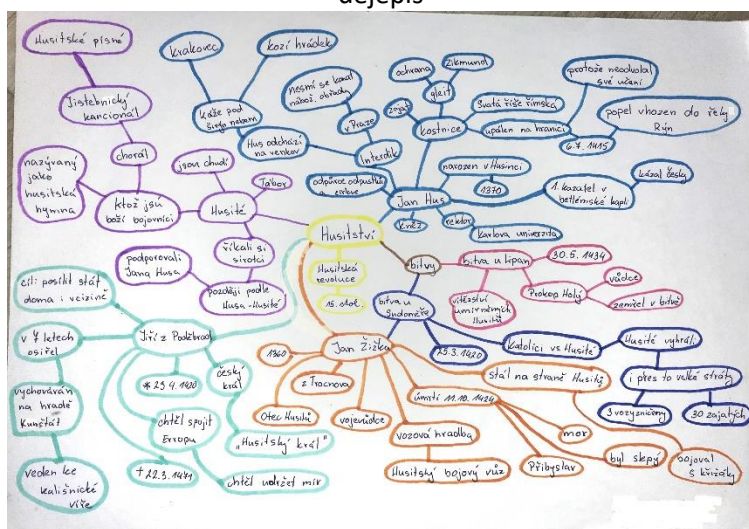 dějepis
Husitské písně
Jistebnický
kancionál
chorál
nazývaný
jako
husitská
hymna
ktož jsú
boží bojovníci
jsou chudí
Tábor
Husité
říkali si
sirotci
podporovali
Jana Husa
později podle
Husa - Husité
Krakovec
kozí hrádek
Káže pod
širým nebem
Hus odchází
na venkov
nesmí se konat
nábož. obřady
v Praze
Interdikt
odpůrce odpustků
a církve
Jan Hus
kněz
rektor
Karlova univerzita
narozen v Husinci
1370
1. kazatel v
betlémské kapli
kázal česky
ochrana
zikmund
gleit
zajat
kostnice
Svatá říše římská
upálen na hranici
protože neodvolal
své učení
6.7. 1415
popel vhozen do řeky
Rýn
Husitství
Husitská
revoluce
15. stol.
bitvy
bitva u Lipan
30. 5. 1434
vítězství
umírněných
Husitů
Prokop Holý
vůdce
zemřel v bitvě
bitva u
Sudoměře
25.3. 1420
Katolíci vs Husité
Husité vyhráli
i přes to velké ztráty
3 vozy zničeny
30 zajatých
Jan Žižka
1360
z Trocnova
Otec Husitů
vojevůdce
vozová hradba
Husitský bojový vůz
úmrtí 11.10. 1424
Přibyslav
mor
byl slepý
stál na straně Husitů
bojoval
s křižáky
Jiří z Poděbrad
cíl: posílit stát
doma i v cizině
v 7 letech
osiřel
vychováván
na hradě
Kunštát
veden ke
kališnické
víře
* 23.4. 1420
† 22.3. 1471
český
král
„Husitský král"
chtěl spojit
Evropu
chtěl udržet mír